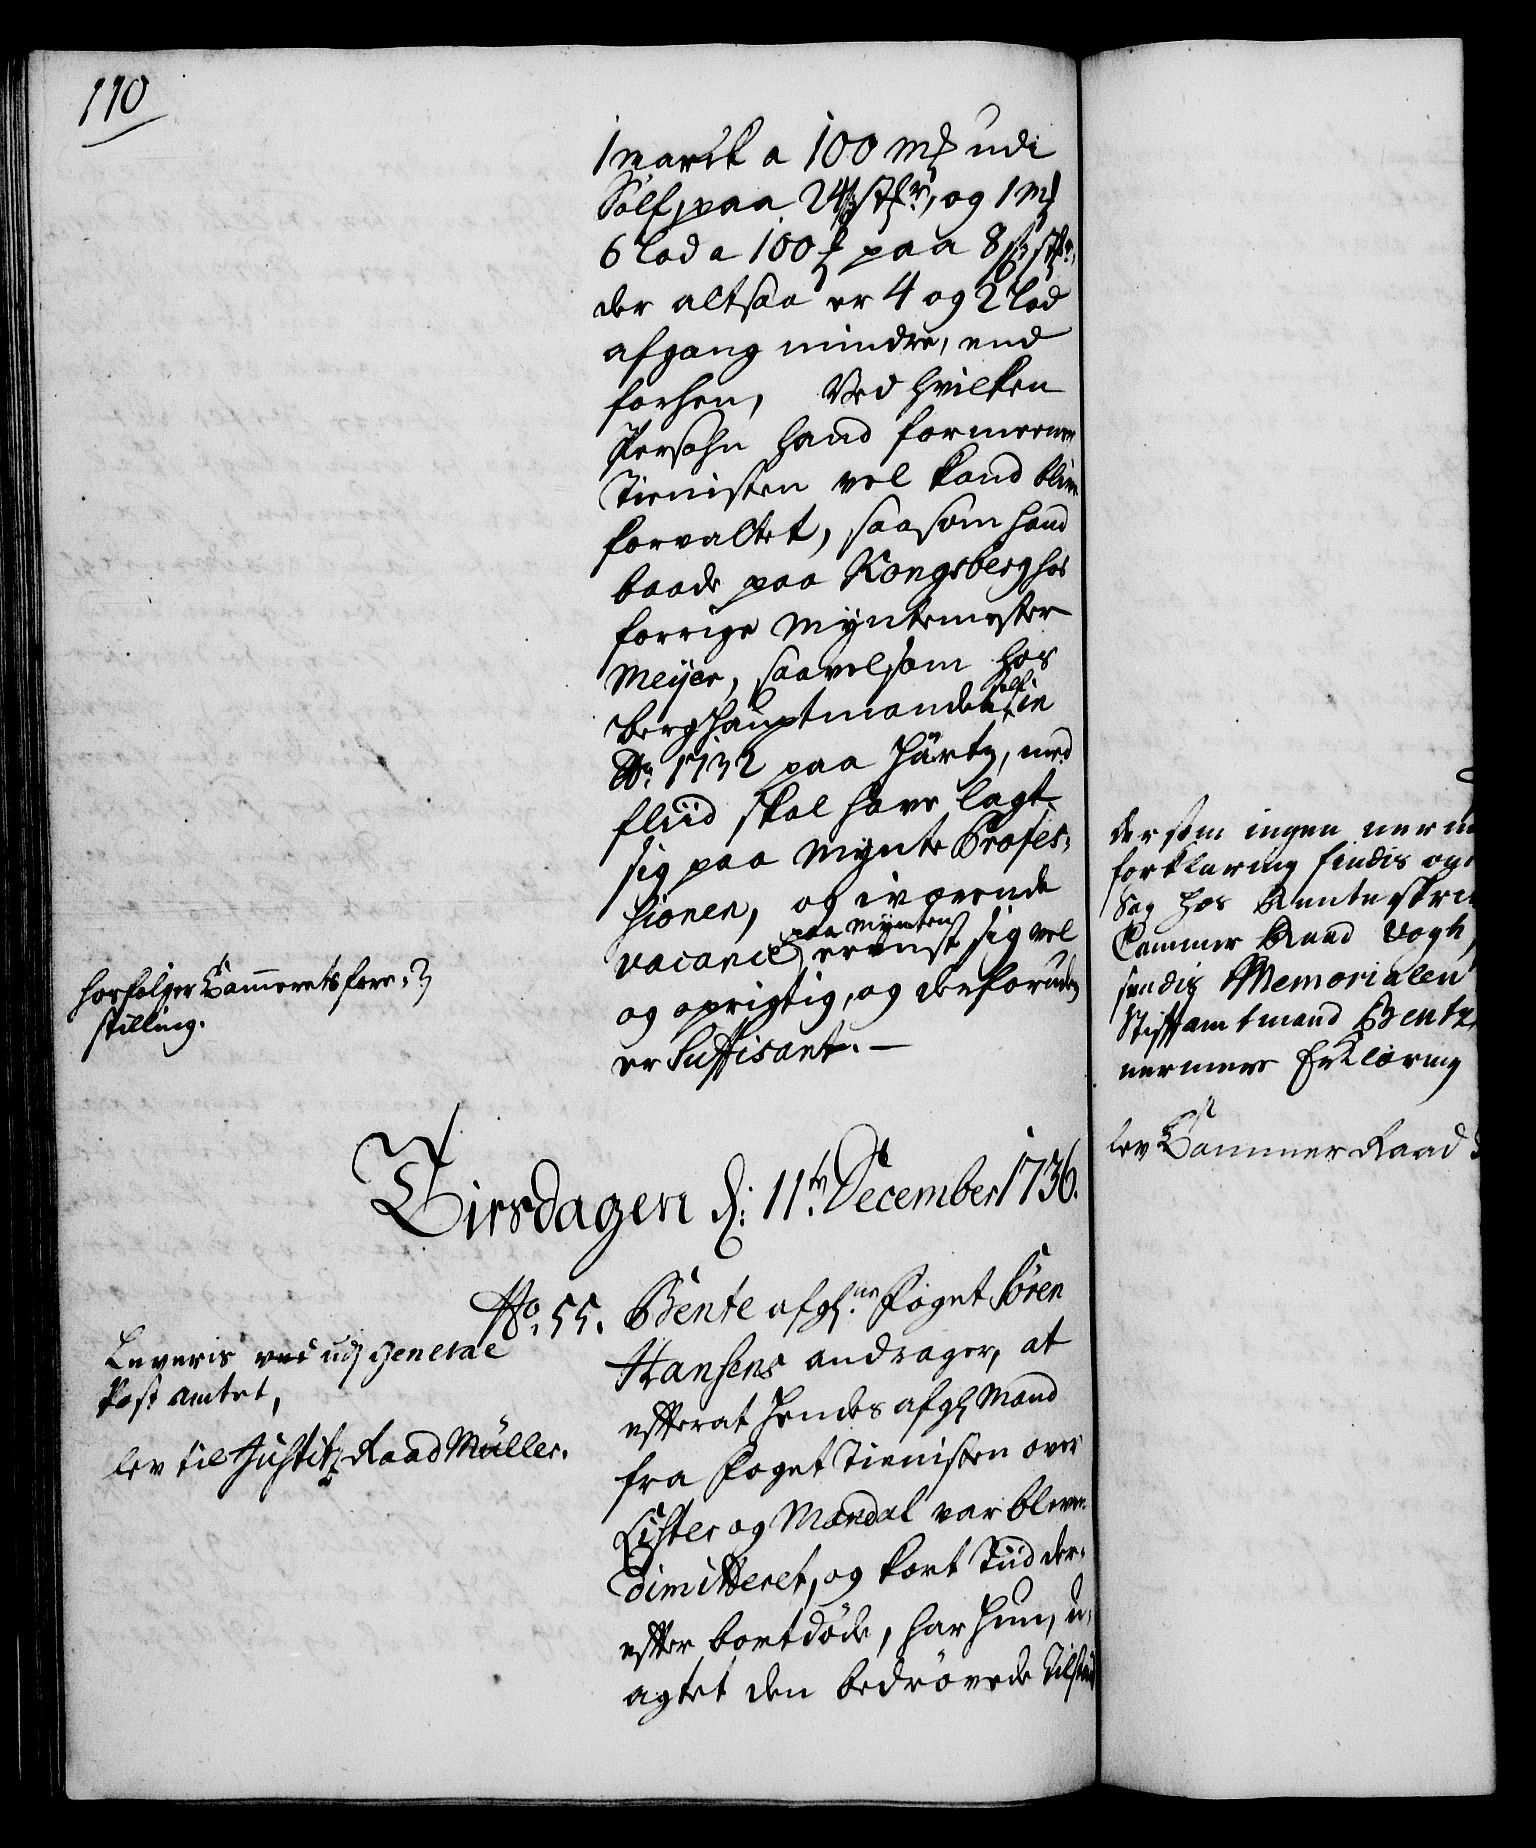 110
1 marck a 100 mk udi
Sölf, paa 24 ß stkr, og 1 mk
6 lod a 100 mk paa 8 ß stkr,
der altsaa er 4 og 2 lod
afgang mindre, end
forhen, Ved hvilken
Persohn hand formeener
Tienisten vel kand blive
forvaltet, saasom hand
baade paa Kongsberg hos
forrige Myntemester
Meyer, saavelsom hos
Berghauptmanden self in
Ao. 1732 paa Härtz, med
fliid skal have lagt
sig paa Mynte Profes-
sionen, og i værende
vacance paa Mynten teenst sig vel
og oprigtig, og desforuden
er Suffisant. —
herfølger Cammerets fore-
stilling.
Tirsdagen d: 11te December 1736.
No. 55. Bente afgne Foget Sören
Hansens andrager, at
efterat hendes afg Mand
fra Foget Tienisten over
Lister og Mandal var bleven
dimitteret, og kort Tiid der-
efter bortdöde, har hun, u-
agtet den bedrövede Tilstand
Leveris ved udj General
Post amtet,
lev til Justitz Raad Müller.
dersom ingen nerm
forklaring findis og
Sag hos Renteskri
Cammer Raad Vogh,
sendis Memorialen
Stiftamtmand Bentz
nermere Erklæring
lev Cammer Raad